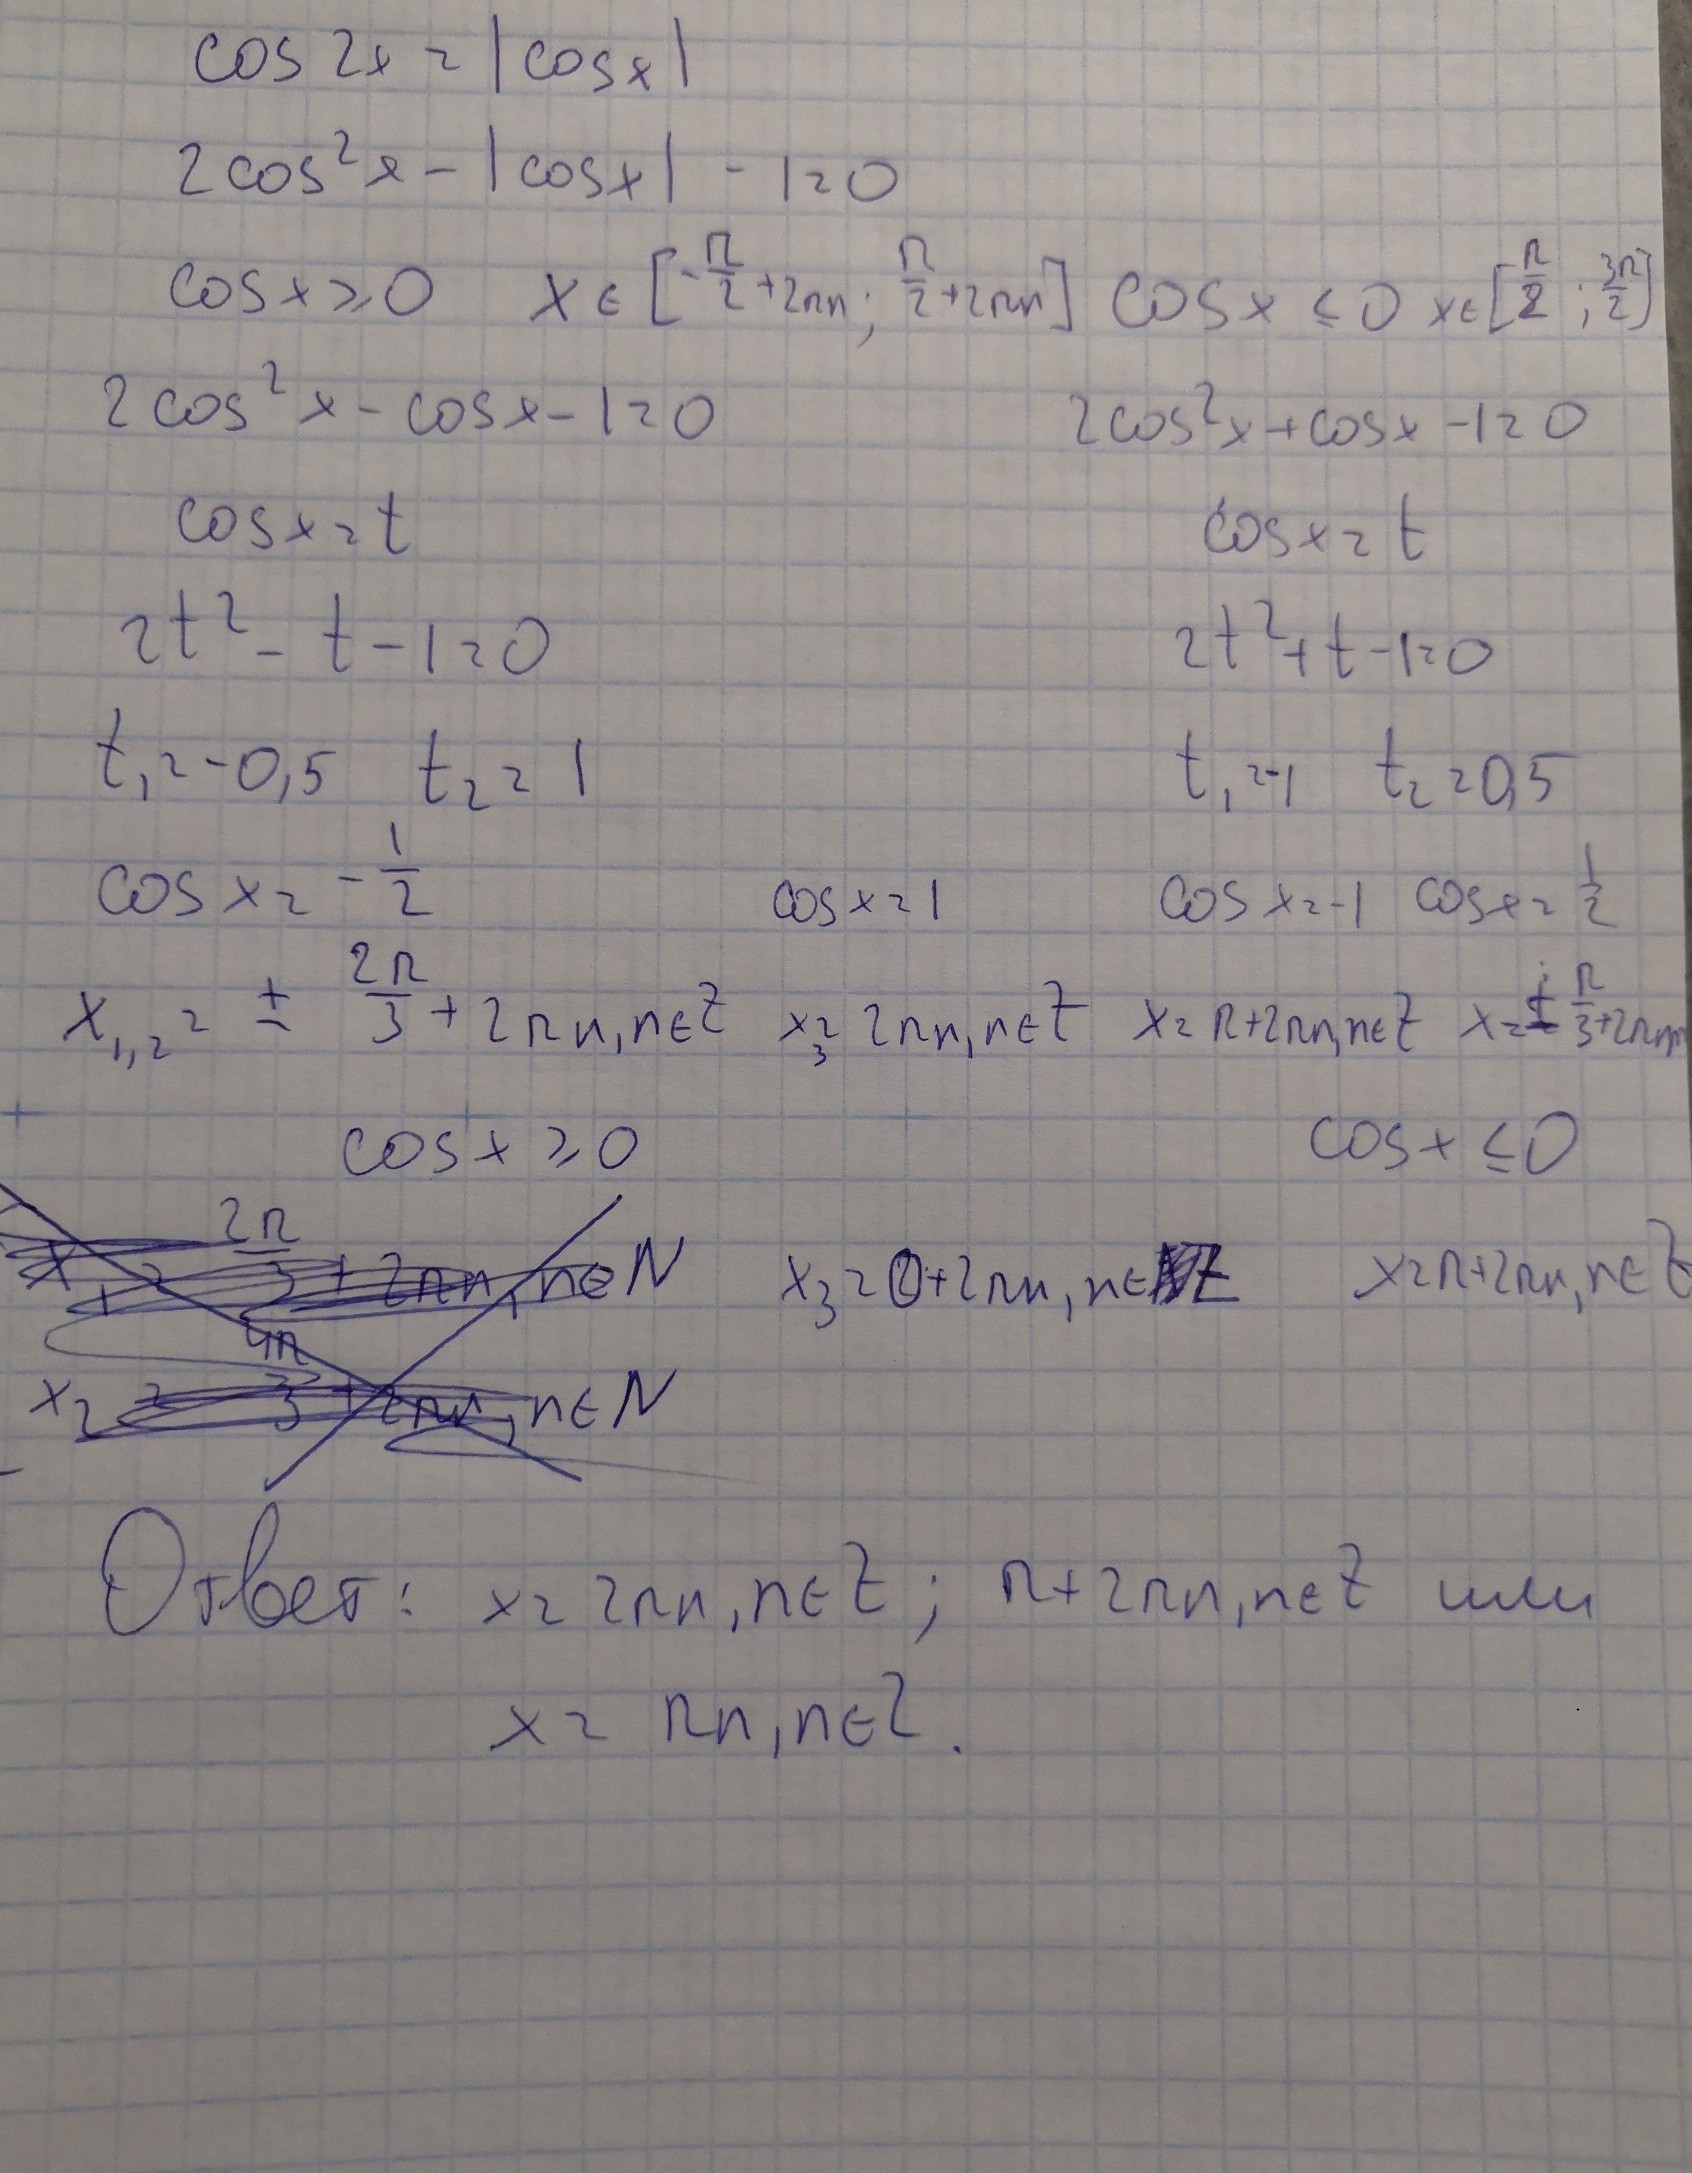 cos 2x = |cosx|
2cos²x - |cosx| - 1 = 0
cosx ≥ 0 x ∈ [-π/2 + 2πn; π/2 + 2πn] cosx ≤ 0 x ∈ [π/2; 3π/2]
2cos²x - cosx - 1 = 0 2cos²x + cosx - 1 = 0
cosx = t cosx = t
2t² - t - 1 = 0 2t² + t - 1 = 0
t₁ = -0,5 t₂ = 1 t₁ = -1 t₂ = 0,5
cosx = -1/2 cosx = 1 cosx = -1 cosx = 1/2
x₁,₂ = ± 2π/3 + 2πn, n∈Z x₃ = 2πn, n∈Z x = π + 2πn, n∈Z x = ± π/3 + 2πn
cosx ≥ 0 cosx ≤ 0
x₁ = 2π/3 + 2πn, n∈N x₃ = 0 + 2πn, n∈Z x = π + 2πn, n∈Z
x₂ = 4π/3 + 2πn, n∈N
Ответ: x = 2πn, n∈Z; π + 2πn, n∈Z или
x = πn, n∈Z.